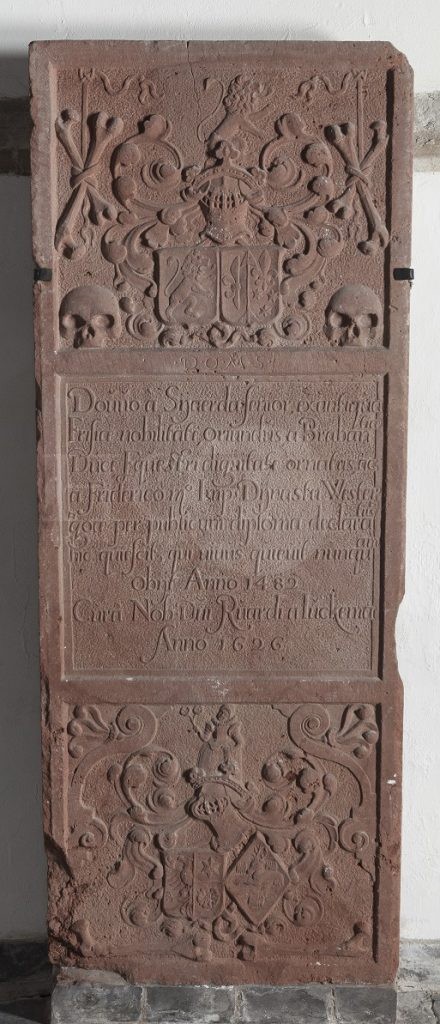 Douno à Sijaerda senior, ex antiqua
Frisiæ nobilitate, oriundus, a Braban
Duce Equestri dignitate ornatus, ac
a Friderico IIIº Imp: Dijnasta Wester
goæ per publicum diploma declarat
hic quiescit, qui vivus quievit nunqu
obijt Anno 1482
Curâ Nob: Dni Ruardi a Iuckema
Anno 1626